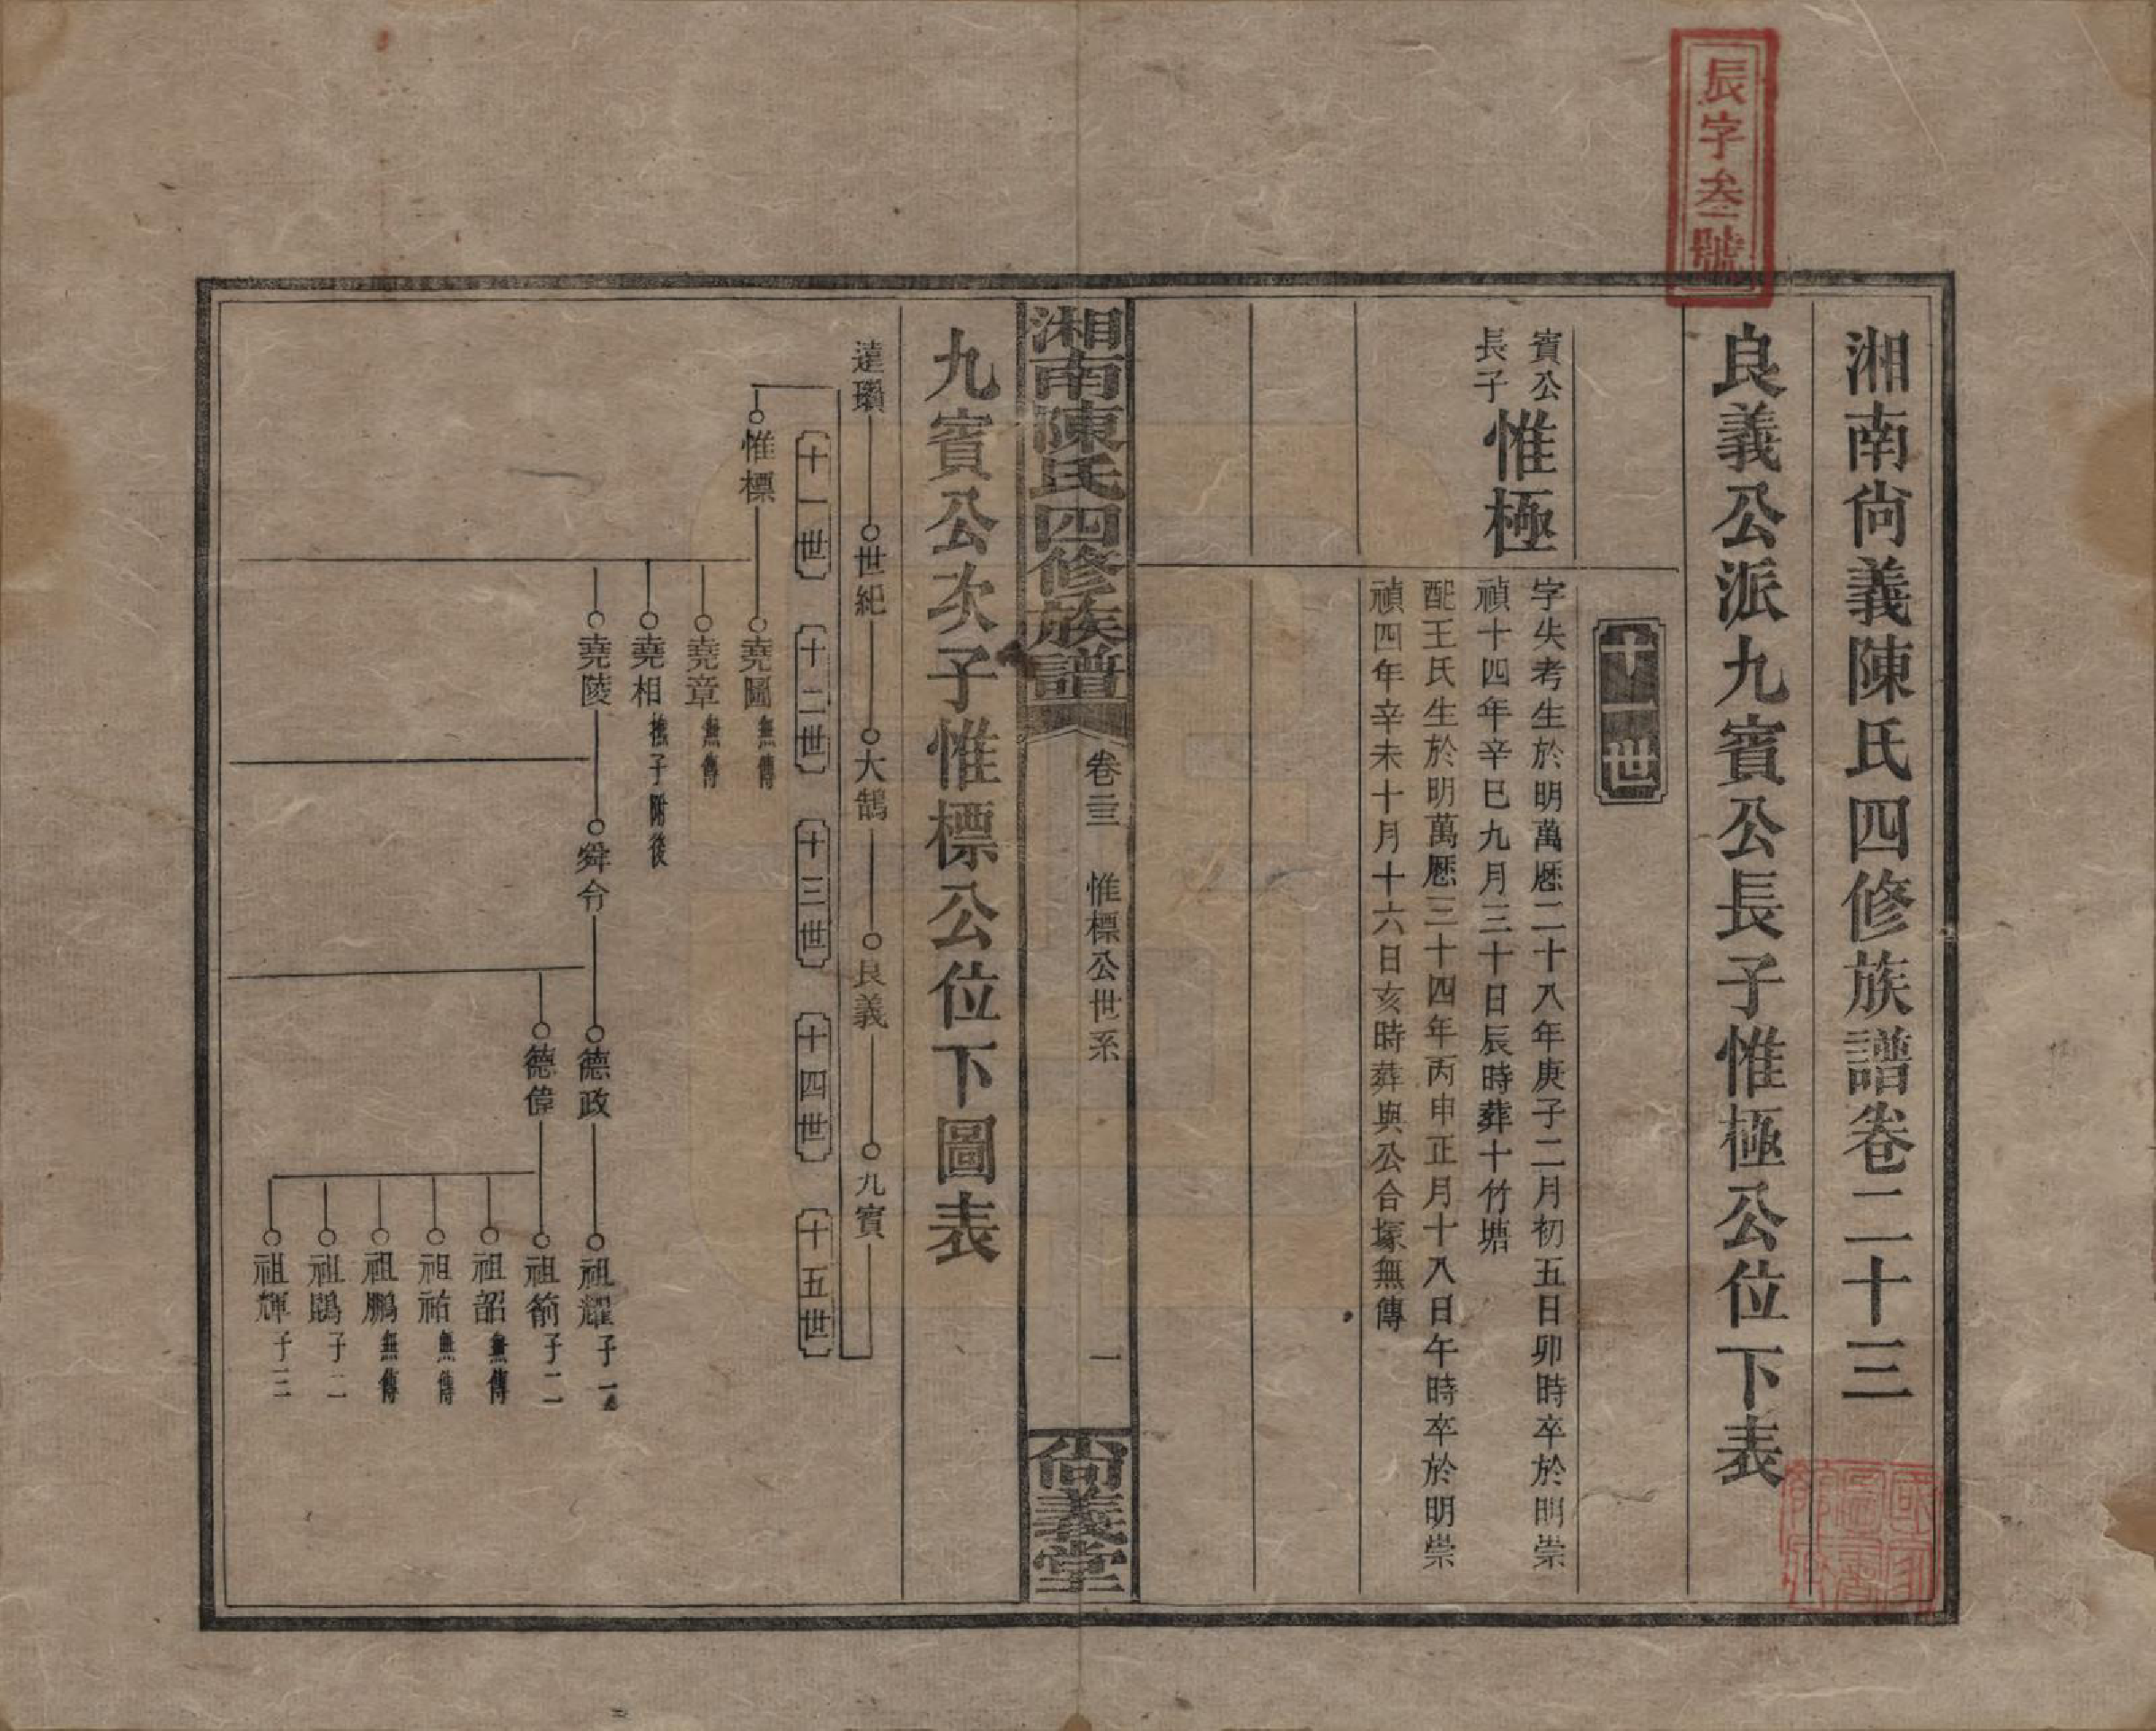 辰字叁號
湘南尙義陳氏四修族譜卷二十三
良義公派九賓公長子惟極公位下表
十一世
賓公
長子
惟極
字失考生於明萬厯二十八年庚子二月初五日卯時卒於明崇
禎十四年辛巳九月三十日辰時葬十竹塘
配王氏生於明萬厯三十四年丙申正月十八日午時卒於明崇
禎四年辛未十月十六日亥時葬與公合塚無傳
湘南陳氏四修族譜
卷二三
惟標公世系
一
尙義堂
九賓公次子惟標公位下圖表
達瓚
世紀
大鵠
良義
九賓
十一世
十二世
十三世
十四世
十五世
惟標
堯圖 無傳
堯章 無傳
堯相 二子附後
堯陵
舜令
德政
祖耀 子一
德偉
祖箭 子二
祖韶 無傳
祖祐 無傳
祖鵬 無傳
祖鷗 子二
祖輝 子三